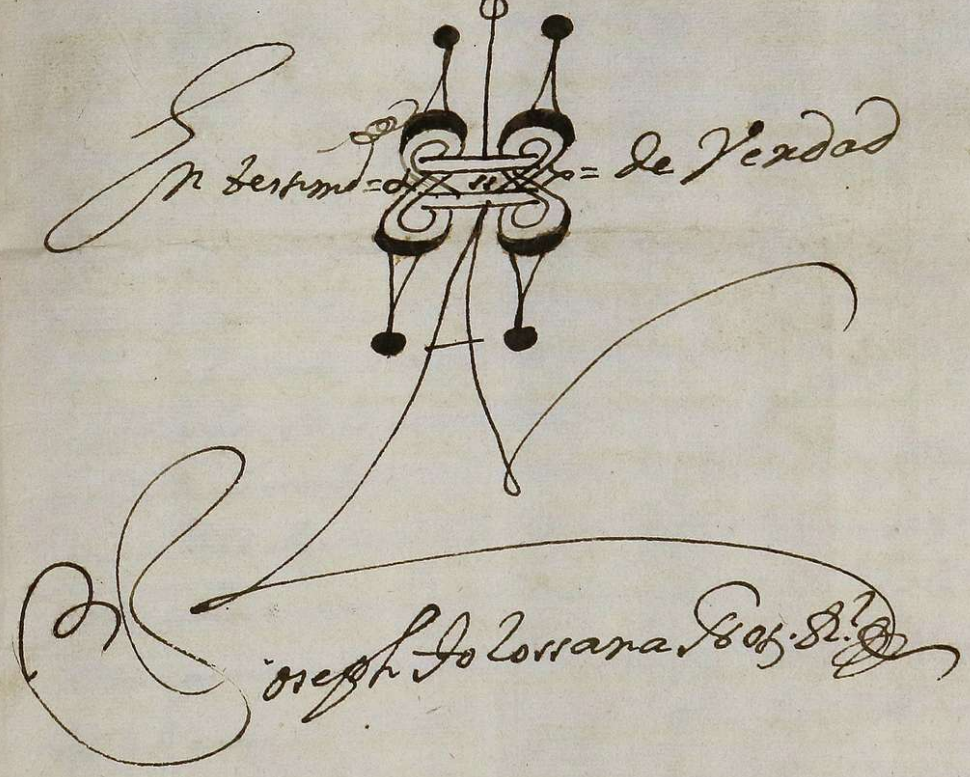 En testimº = = de Verdad
Joseph de Lossana